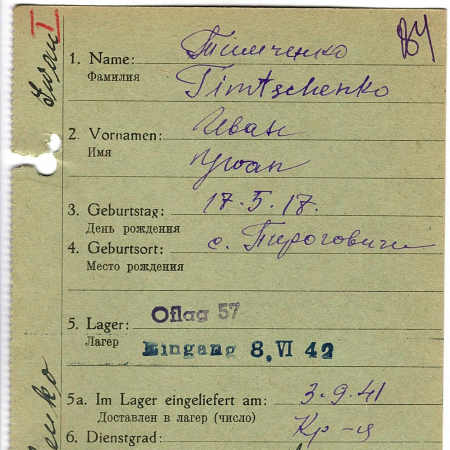 I
1. Name: Тимченко
Фамилия Timtschenko
2. Vornamen: Иван
Имя Iwan
3. Geburtstag: 17.5.17.
День рождения
4. Geburtsort: с. Пироговичи
Место рождения
5. Lager: Oflag 57
Лагер Eingang 8. VI 42
5a. Im Lager eingeliefert am: 3.9.41
Доставлен в лагер (число)
6. Dienstgrad: Кр-ц